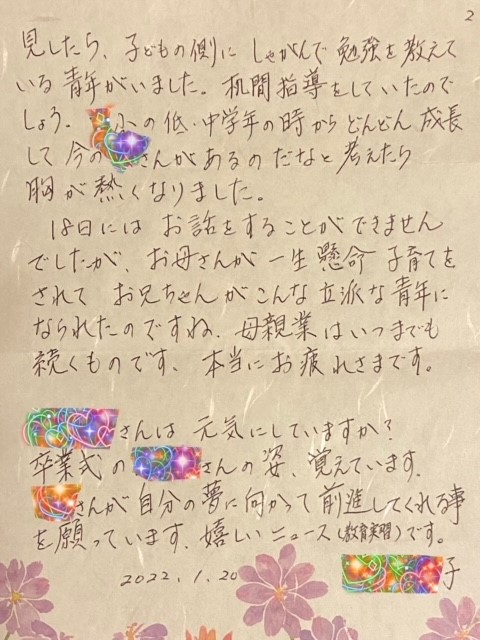 2
見したら、子どもの側に しゃがんで 勉強を教えて
いる青年がいました。机間指導をしていたので
しょう。 小の低・中学年の時から どんどん 成長
して 今の さんがあるのだなと 考えたら
胸が熱くなりました。
18日には お話をすることができません
でしたが、お母さんが一生懸命 子育てを
されて お兄ちゃんがこんな立派な青年に
なられたのですね。母親業はいつまでも
続くものです、本当にお疲れさまです。
さんは 元気にしていますか?
卒業式の さんの姿、覚えています。
さんが自分の夢に向かって前進してくれる事
を願っています。嬉しいニュース(教育実習)です。
2022.1.20 子